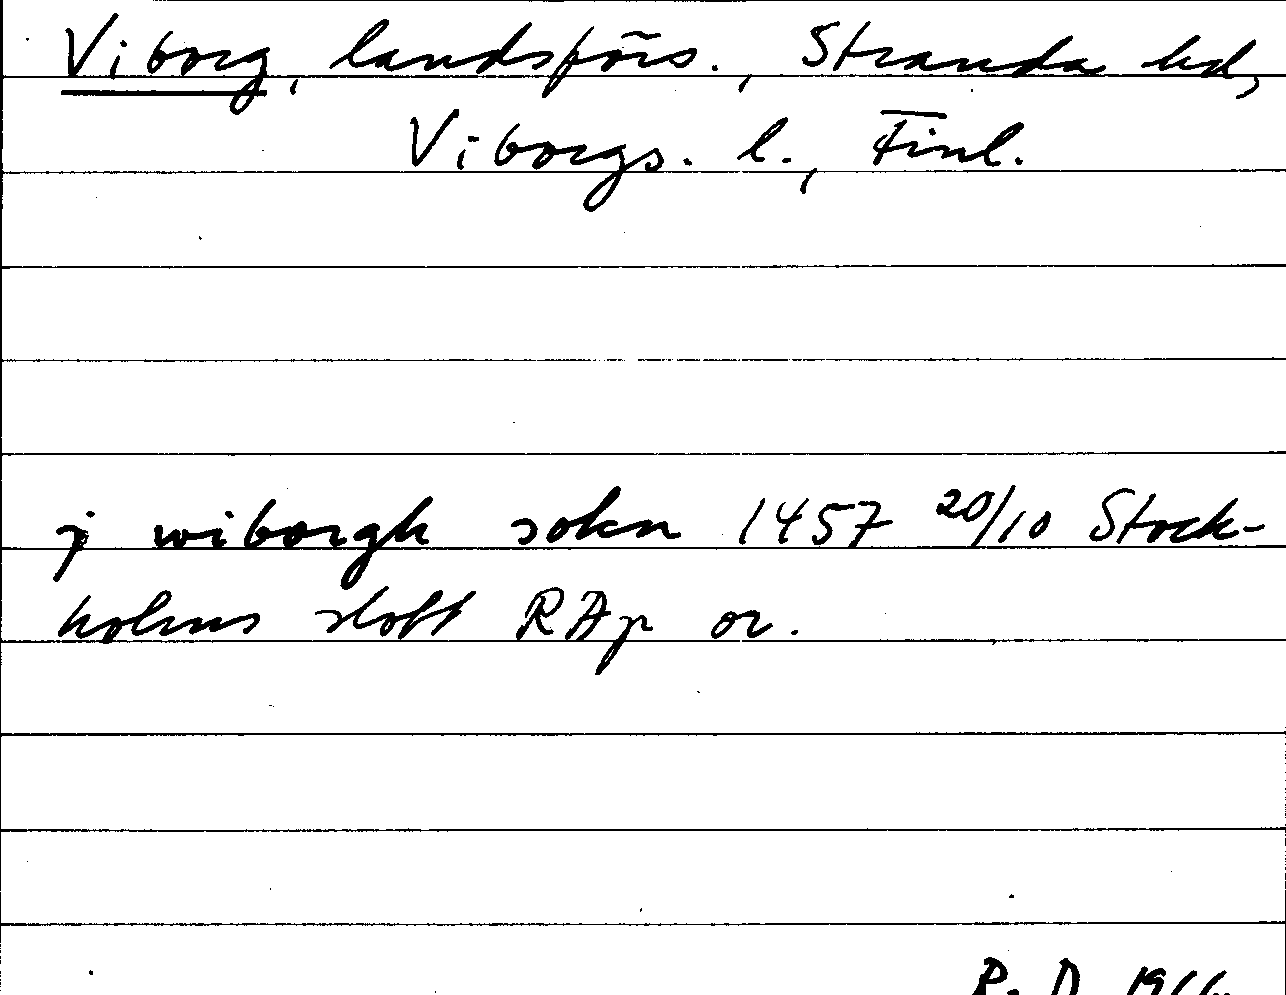 Viborg, landsförs., Stranda hd,
Viborgs. l., Finl.
j wiborgh sokn 1457 20/10 Stock-
holms slott RAp or.
R. D. 1966